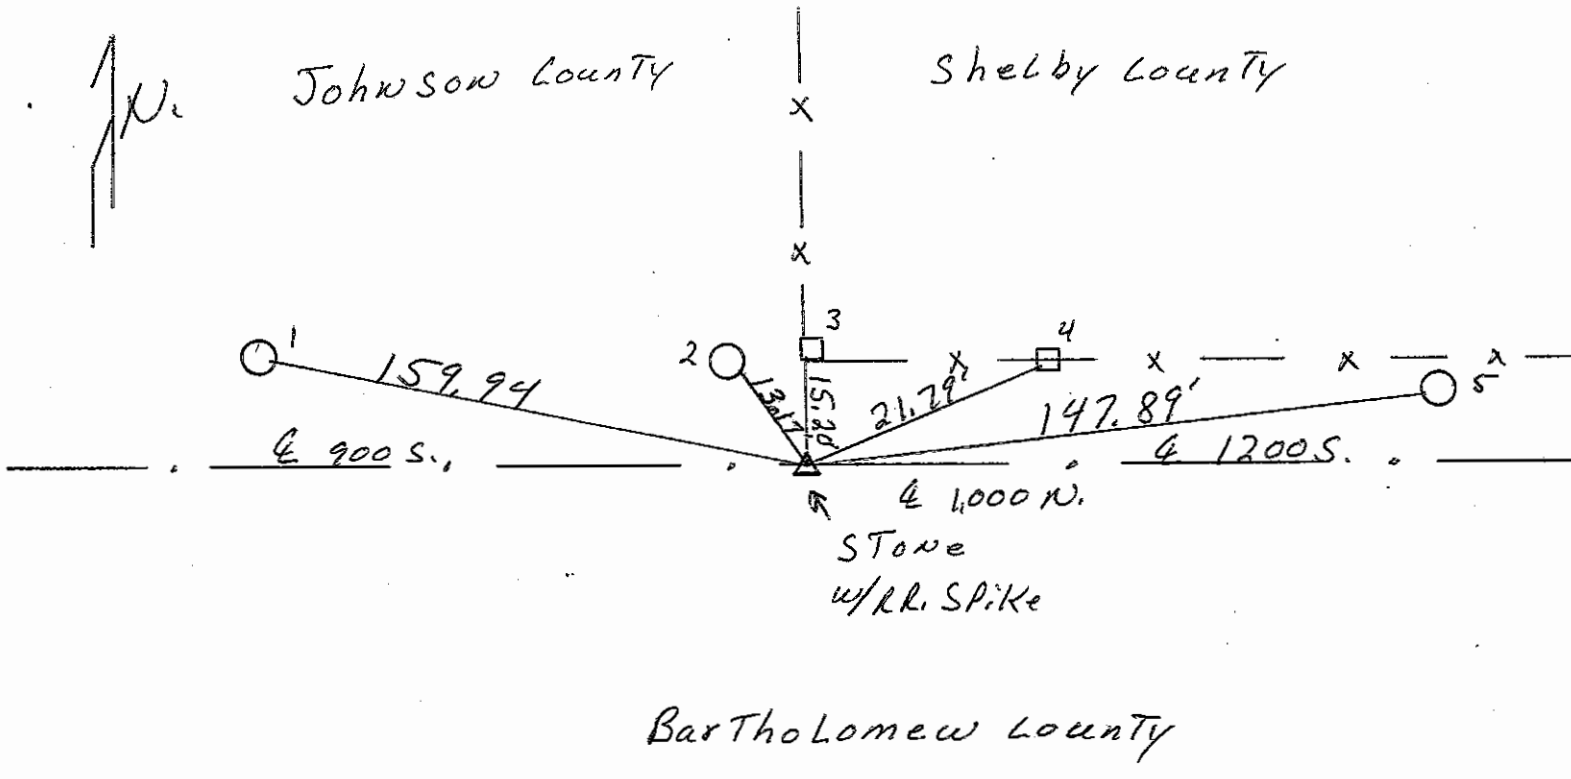 N.
Johnson County
Shelby County
x
x
1
2
3
4
5
x
x
x
x
159.94
13.17
15.20'
21.79'
147.89'
℄ 900 S.
℄ 1200 S.
℄ 1,000 N.
Stone
w/RR. Spike
Bartholomew County